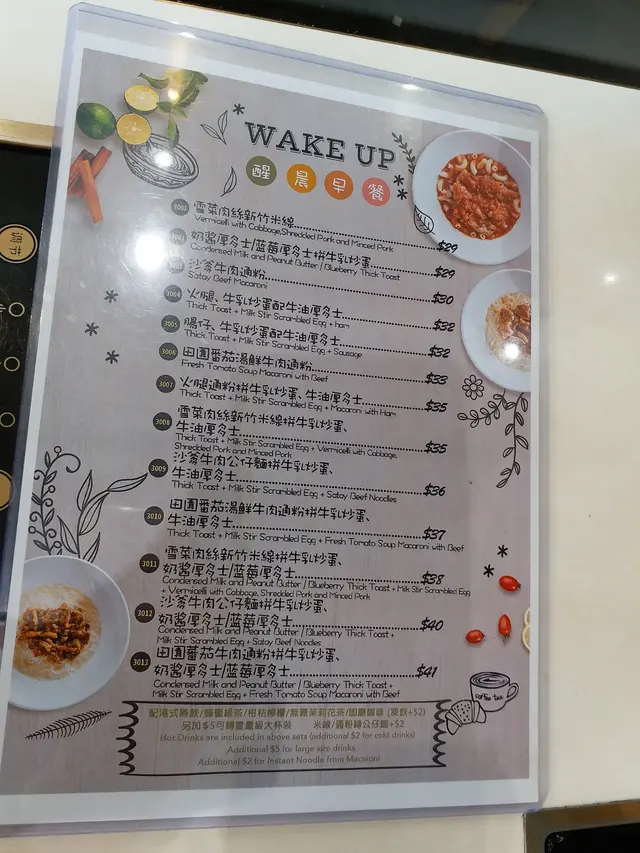 WAKE UP
醒晨早餐
3001 雪菜肉絲新竹米線 $29
Vermicelli with Cabbage,Shredded Pork and Minced Pork
奶醬厚多士/藍莓厚多士拼牛乳炒蛋 $29
Condensed Milk and Peanut Butter / Blueberry Thick Toast
沙爹牛肉通粉 $30
Satay Beef Macaroni
3004 火腿、牛乳炒蛋配牛油厚多士 $32
Thick Toast + Milk Stir Scrambled Egg + Ham
3005 腸仔、牛乳炒蛋配牛油厚多士 $32
Thick Toast + Milk Stir Scrambled Egg + Sausage
3006 田園番茄湯鮮牛肉通粉 $33
Fresh Tomato Soup Macaroni with Beef
3007 火腿通粉拼牛乳炒蛋、牛油厚多士 $35
Thick Toast + Milk Stir Scrambled Egg + Macaroni with Ham
3008 雪菜肉絲新竹米線拼牛乳炒蛋、
牛油厚多士 $35
Thick Toast + Milk Stir Scrambled Egg + Vermicelli with Cabbage,
Shredded Pork and Minced Pork
3009 沙爹牛肉公仔麵拼牛乳炒蛋、
牛油厚多士 $36
Thick Toast + Milk Stir Scrambled Egg + Satay Beef Noodles
3010 田園番茄湯鮮牛肉通粉拼牛乳炒蛋、
牛油厚多士 $37
Thick Toast + Milk Stir Scrambled Egg + Fresh Tomato Soup Macaroni with Beef
3011 雪菜肉絲新竹米線拼牛乳炒蛋、
奶醬厚多士/藍莓厚多士 $38
Condensed Milk and Peanut Butter / Blueberry Thick Toast + Milk Stir Scrambled Egg
+ Vermicelli with Cabbage, Shredded Pork and Minced Pork
3012 沙爹牛肉公仔麵拼牛乳炒蛋、
奶醬厚多士/藍莓厚多士 $40
Condensed Milk and Peanut Butter / Blueberry Thick Toast +
Milk Stir Scrambled Egg + Satay Beef Noodles
3013 田園番茄牛肉通粉拼牛乳炒蛋、
奶醬厚多士/藍莓厚多士 $41
Condensed Milk and Peanut Butter / Blueberry Thick Toast +
Milk Stir Scrambled Egg + Fresh Tomato Soup Macaroni with Beef
coffee tea
配港式熱飲/蜂蜜綠茶/柑桔檸檬/無糖茉莉花茶/即磨咖啡 (凍飲+$2)
另加$5可轉重量級大杯裝 米線/通粉轉公仔麵+$2
Hot Drinks are included in above sets (additional $2 for cold drinks)
Additional $5 for large size drinks
Additional $2 for Instant Noodle from Macaroni